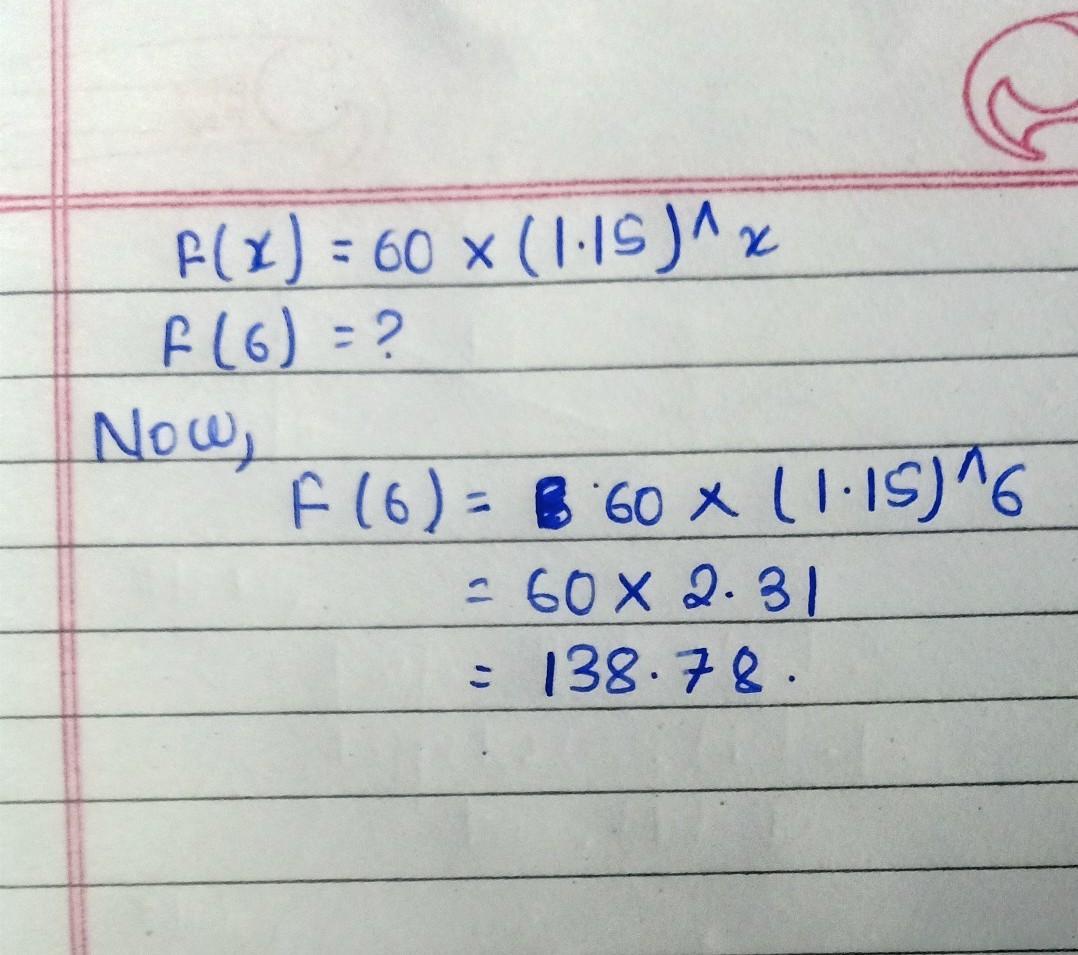 F(x) = 60 × (1.15)^x
F(6) = ?
Now,
F(6) = 60 × (1.15)^6
= 60 × 2.31
= 138.78.